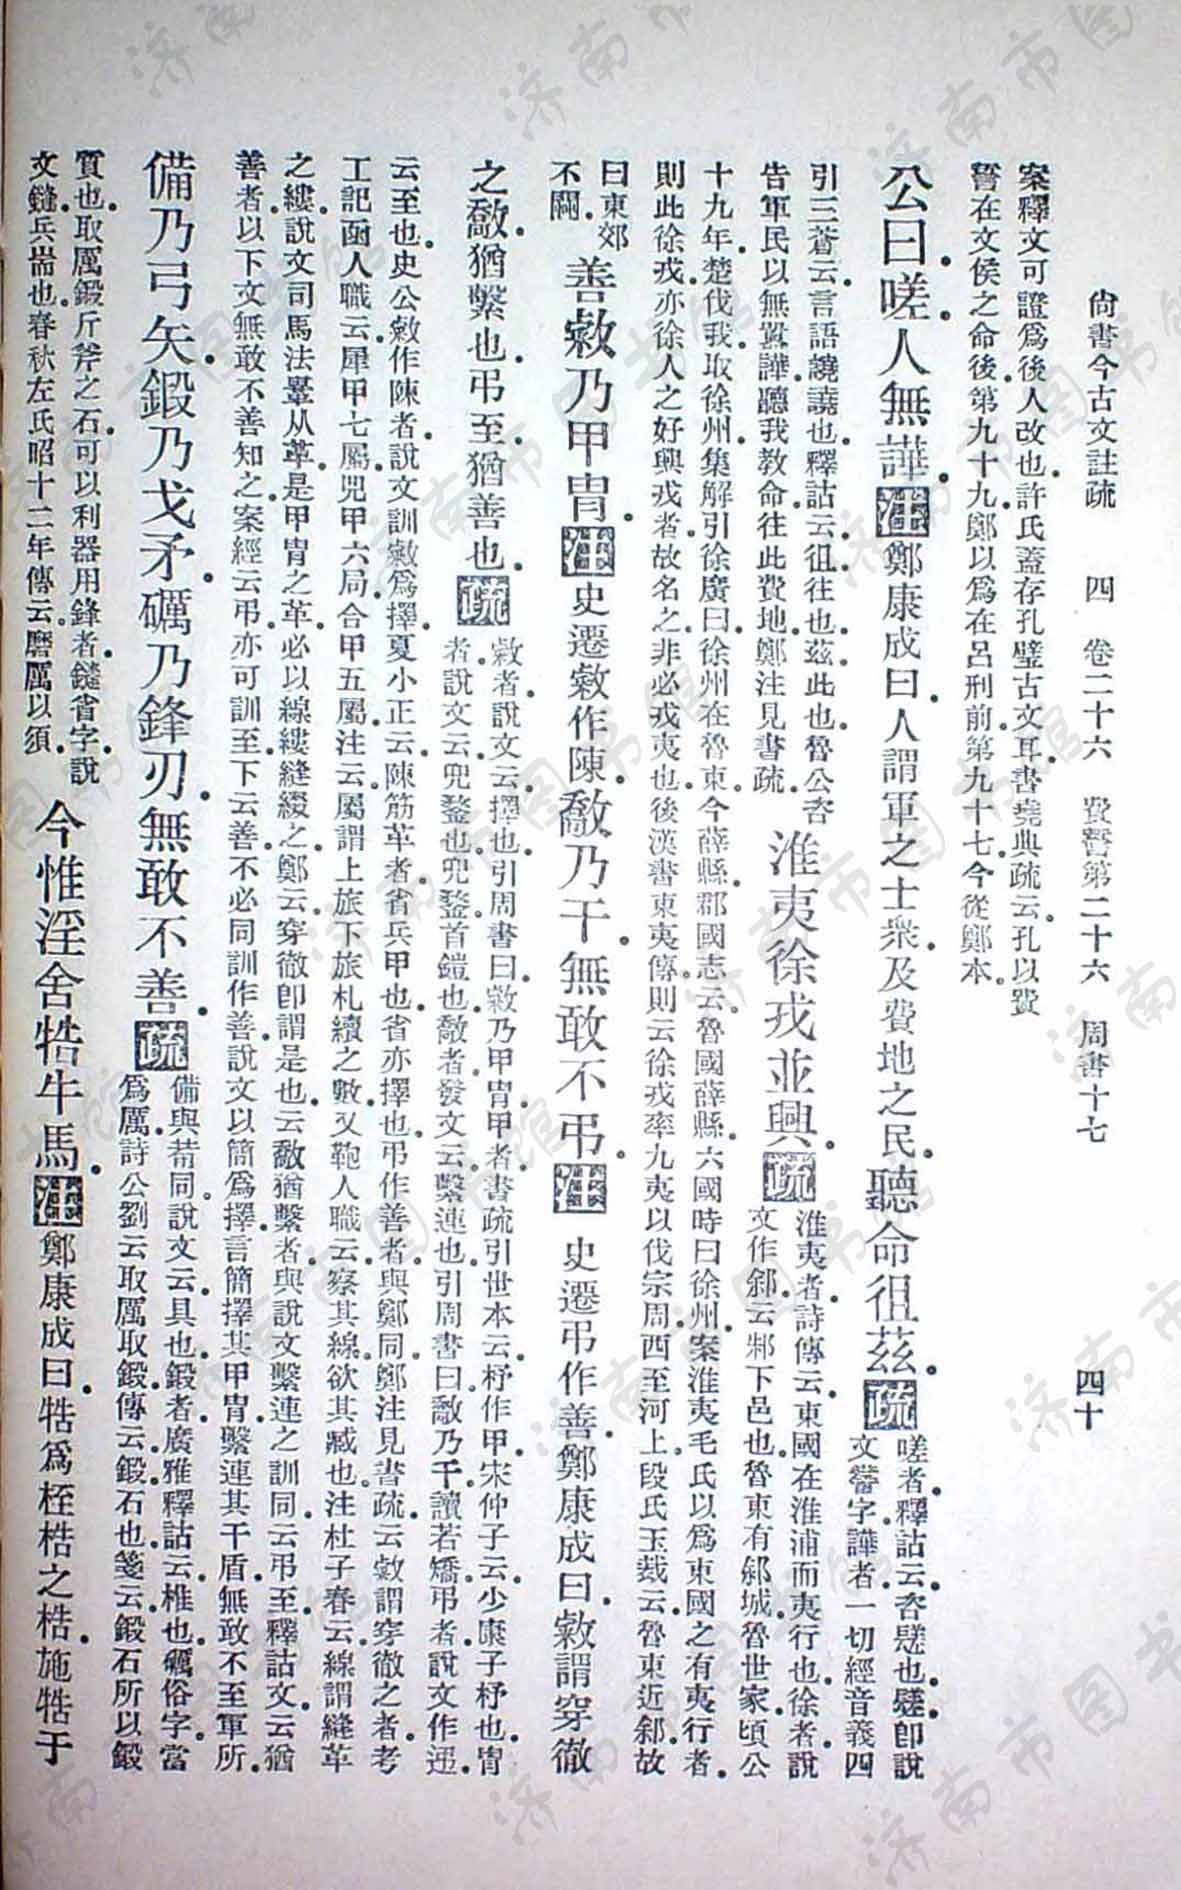 尙書今古文註疏　四　卷二十六　費誓第二十六　周書十七　四十
案釋文可證爲後人改也許氏蓋存孔壁古文耳書堯典疏云孔以費
誓在文侯之命後第九十九鄭以爲在呂刑前第九十七今從鄭本
公曰嗟人無譁注鄭康成曰人謂軍之士衆及費地之民聽命徂茲疏
嗟者釋詁云咨𨲠也𨲠卽說
文𧪰字譁者一切經音義四
引三蒼云言語譊譊也釋詁云徂往也茲此也魯公咨
告軍民以無嚚譁聽我教命往此費地鄭注見書疏
淮夷徐戎並興疏
淮夷者詩傳云東國在淮浦而夷行也徐者說
文作䣄云邾下邑也魯東有䣄城魯世家頃公
十九年楚伐我取徐州集解引徐廣曰徐州在魯東今薛縣郡國志云魯國薛縣六國時曰徐州案淮夷毛氏以爲東國之有夷行者
則此徐戎亦徐人之好興戎者故名之非必戎夷也後漢書東夷傳則云徐戎率九夷以伐宗周西至河上段氏玉裁云魯東近䣄故
曰東郊
不闢
善敹乃甲冑注史遷敹作陳敿乃干無敢不弔注史遷弔作善鄭康成曰敹謂穿徹
之敿猶繫也弔至猶善也疏
敹者說文云擇也引周書曰敹乃甲冑甲者書疏引世本云杼作甲宋仲子云少康子杼也冑
者說文云兜鍪也兜鍪首鎧也敿者發文云繫連也引周書曰敿乃干讀若矯弔者說文作迅
云至也史公敹作陳者說文訓敹爲擇夏小正云陳筋革者省兵甲也省亦擇也弔作善者與鄭同鄭注見書疏云敹謂穿徹之者考
工記函人職云犀甲七屬兕甲六局合甲五屬注云屬謂上旅下旅札續之數又鞄人職云察其線欲其臧也注杜子春云線謂縫革
之縷說文司馬法鞏从革是甲冑之革必以線縷縫綴之鄭云穿徹卽謂是也云敿猶繫者與說文繫連之訓同云弔至釋詁文云猶
善者以下文無敢不善知之案經云弔亦可訓至下云善不必同訓作善說文以簡爲擇言簡擇其甲冑繫連其干盾無敢不至軍所
備乃弓矢鍛乃戈矛礪乃鋒刃無敢不善疏
備與葡同說文云具也鍛者廣雅釋詁云椎也礪俗字當
爲厲詩公劉云取厲取鍛傳云鍛石也箋云鍛石所以鍛
質也取厲鍛斤斧之石可以利器用鋒者鏠省字說
文鏠兵耑也春秋左氏昭十二年傳云磨厲以須
今惟淫舍牿牛馬注鄭康成曰牿爲桎梏之梏施牿于